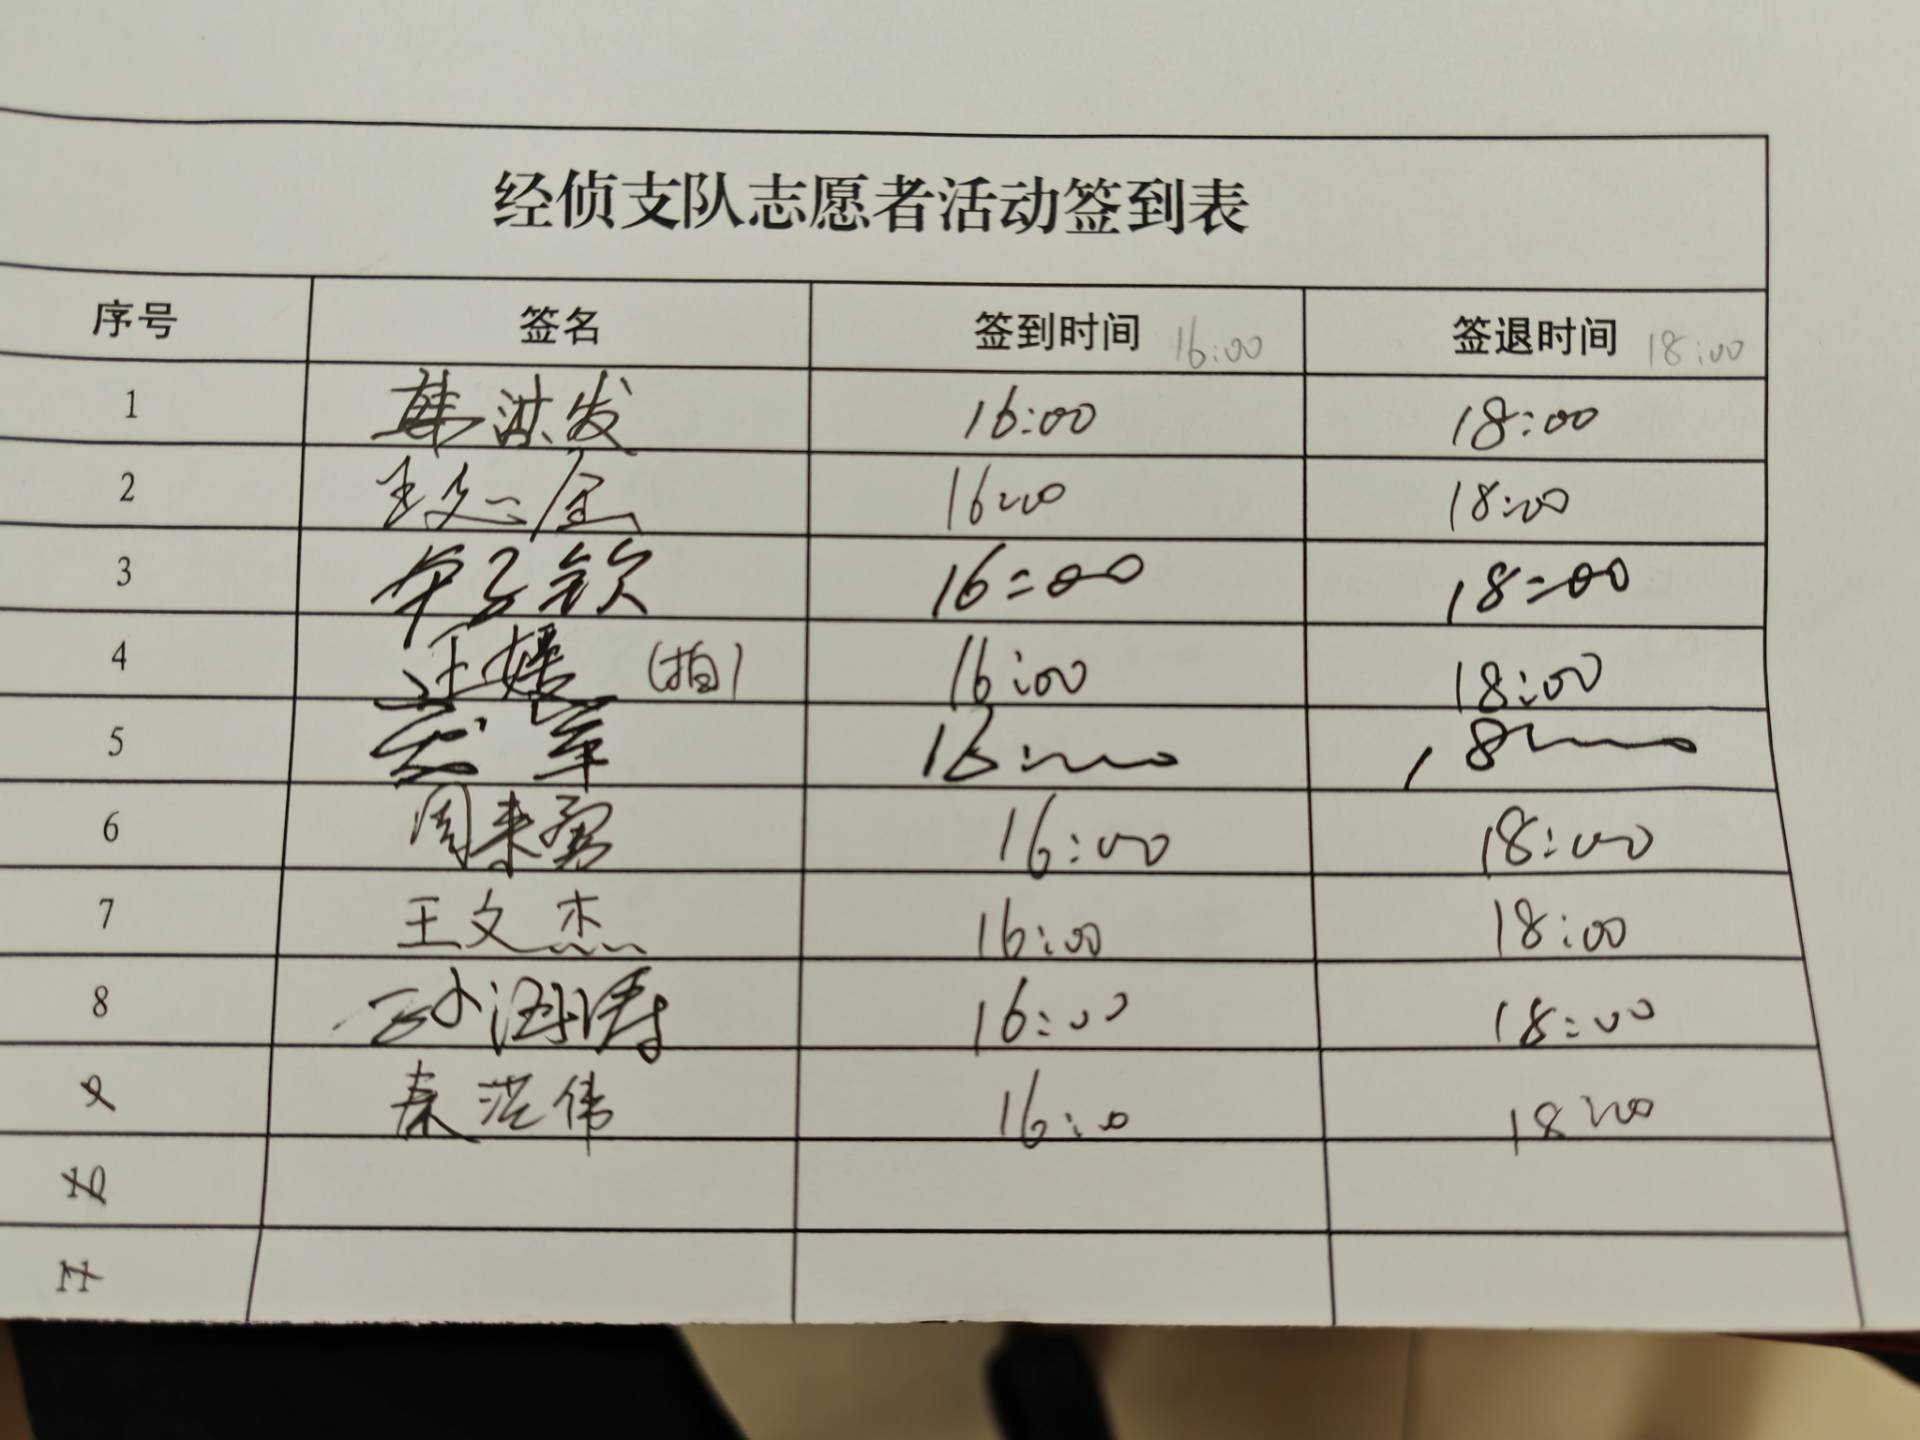 经侦支队志愿者活动签到表
序号 签名 签到时间 16:00 签退时间 18:00
1 韩洪发 16:00 18:00
2 16:00 18:00
3 钦 16:00 18:00
4 王媛 (拍) 16:00 18:00
5 军 16:00 18:00
6 周来勇 16:00 18:00
7 王文杰 16:00 18:00
8 孙润涛 16:00 18:00
9 秦洪伟 16:0 18:00